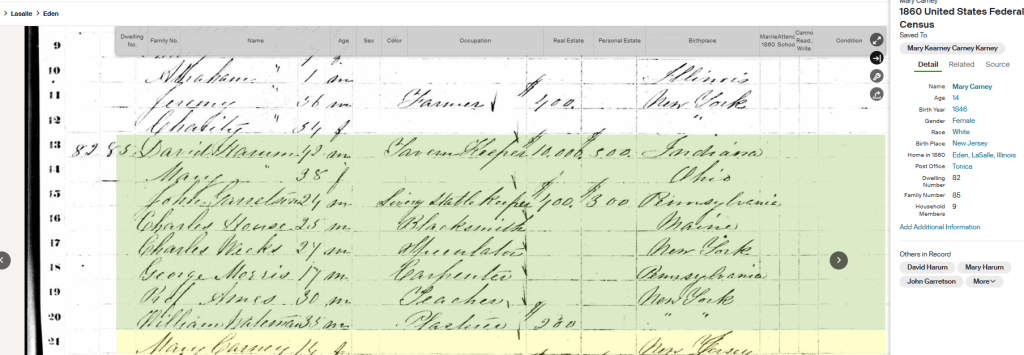 > Lasalle > Eden
Dwelling No. Family No. Name Age Sex Color Occupation Real Estate Personal Estate Birthplace Married 1860 Attend School Canno Read, Write Condition
9
10 Abraham " 1 m Illinois
11 Jeremy " 36 m Farmer $400. New York
12 Charlity " 34 f "
13 82 85 David Harum 42 m Tavern Keeper $10,000. $500. Indiana
14 Mary " 38 f Ohio
15 John Garretson 24 m Livery Stable Keeper $400. $300 Pennsylvania
16 Charles House 25 m Blacksmith Maine
17 Charles Weeks 27 m Speculator New York
18 George Morris 17 m Carpenter Pennsylvania
19 Ames 30 m Teacher New York
20 William Bateman 35 m Plasterer $200 " "
21 Mary Carney 14 f New Jersey
Mary Carney
1860 United States Federal
Census
Saved To
Mary Kearney Carney Karney
Detail Related Source
Name Mary Carney
Age 14
Birth Year 1846
Gender Female
Race White
Birth Place New Jersey
Home in 1860 Eden, LaSalle, Illinois
Post Office Tonica
Dwelling Number 82
Family Number 85
Household Members 9
Add Additional Information
Others in Record
David Harum Mary Harum
John Garretson More